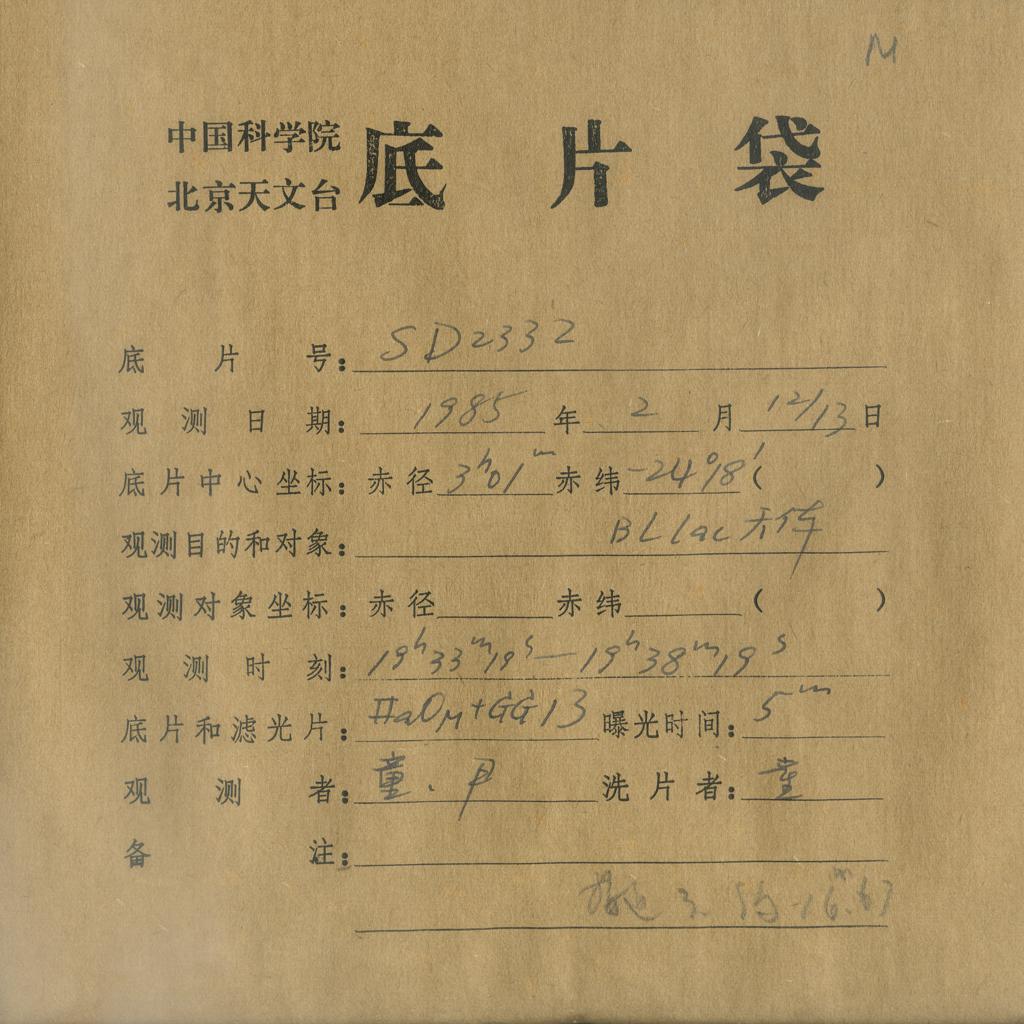 M
中国科学院
北京天文台 底片袋
底片号: SD2332
观测日期: 1985年2月12/13日
底片中心坐标: 赤径3ʰ01ᵐ赤纬-24°18′( )
观测目的和对象: BLlac天体
观测对象坐标: 赤径 赤纬 ( )
观测时刻: 19ʰ33ᵐ19ˢ—19ʰ38ᵐ19ˢ
底片和滤光片: IIaOM+GG13 曝光时间: 5ᵐ
观测者: 童.尹 洗片者: 童
备注:
16ᵐ.67